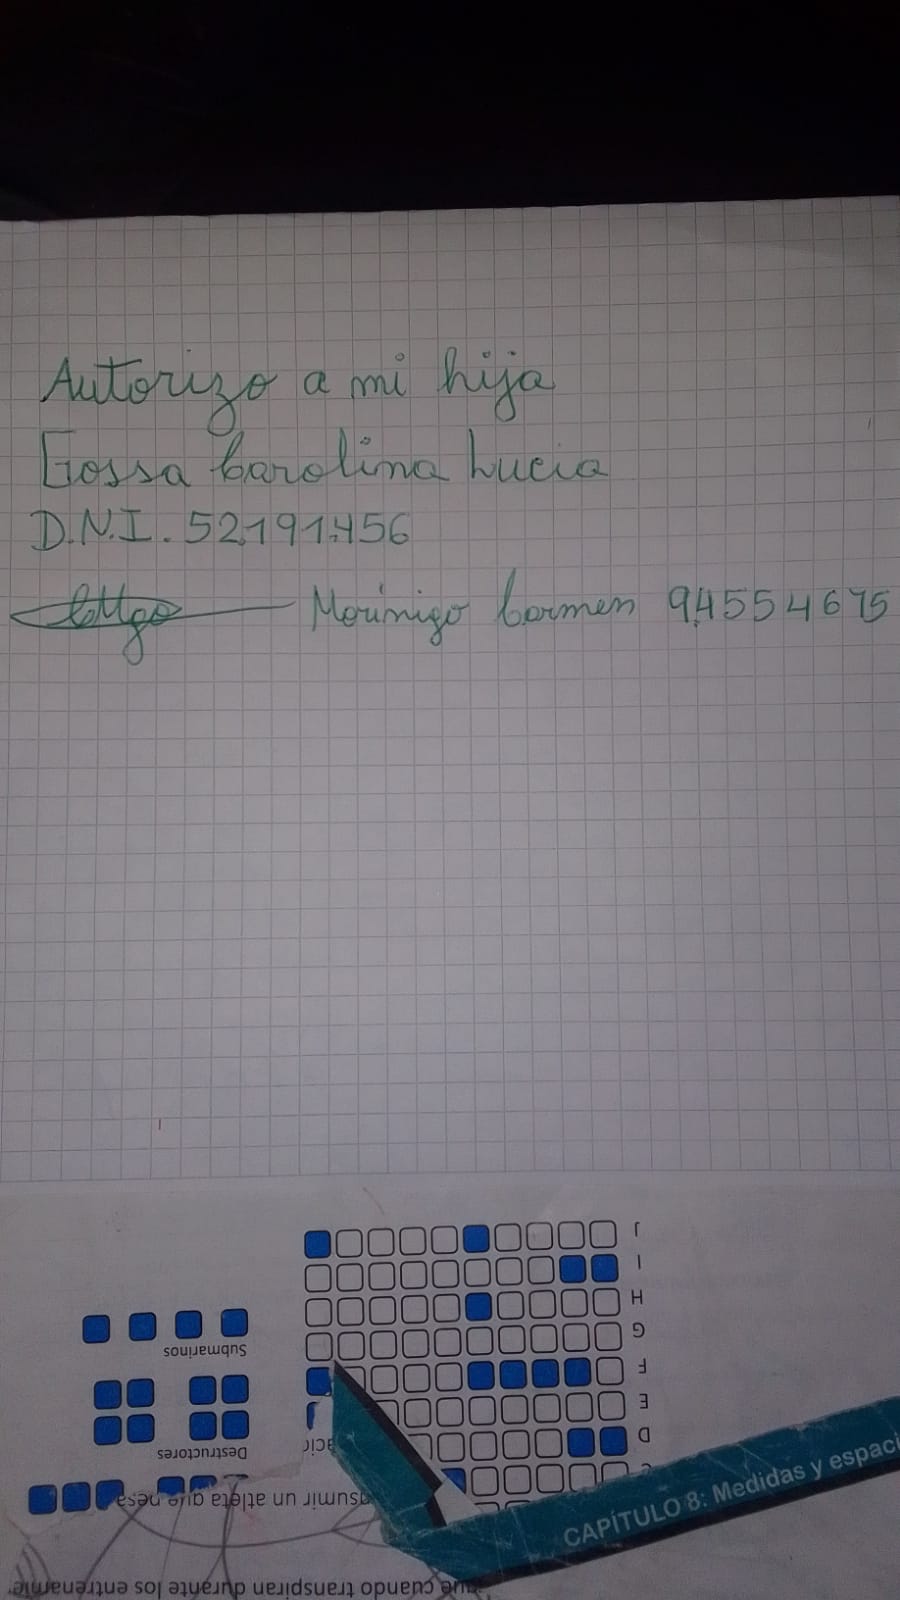 Autorizo a mi hija
Gossa Carolina Lucia
D.N.I. 52.191.456
Morinigo Carmen 94554675
J
I
H
G
F
E
D
Submarinos
Destructores
sumir un atleta que pesa
CAPÍTULO 8: Medidas y espaci
que cuando transpiran durante los entrenamie